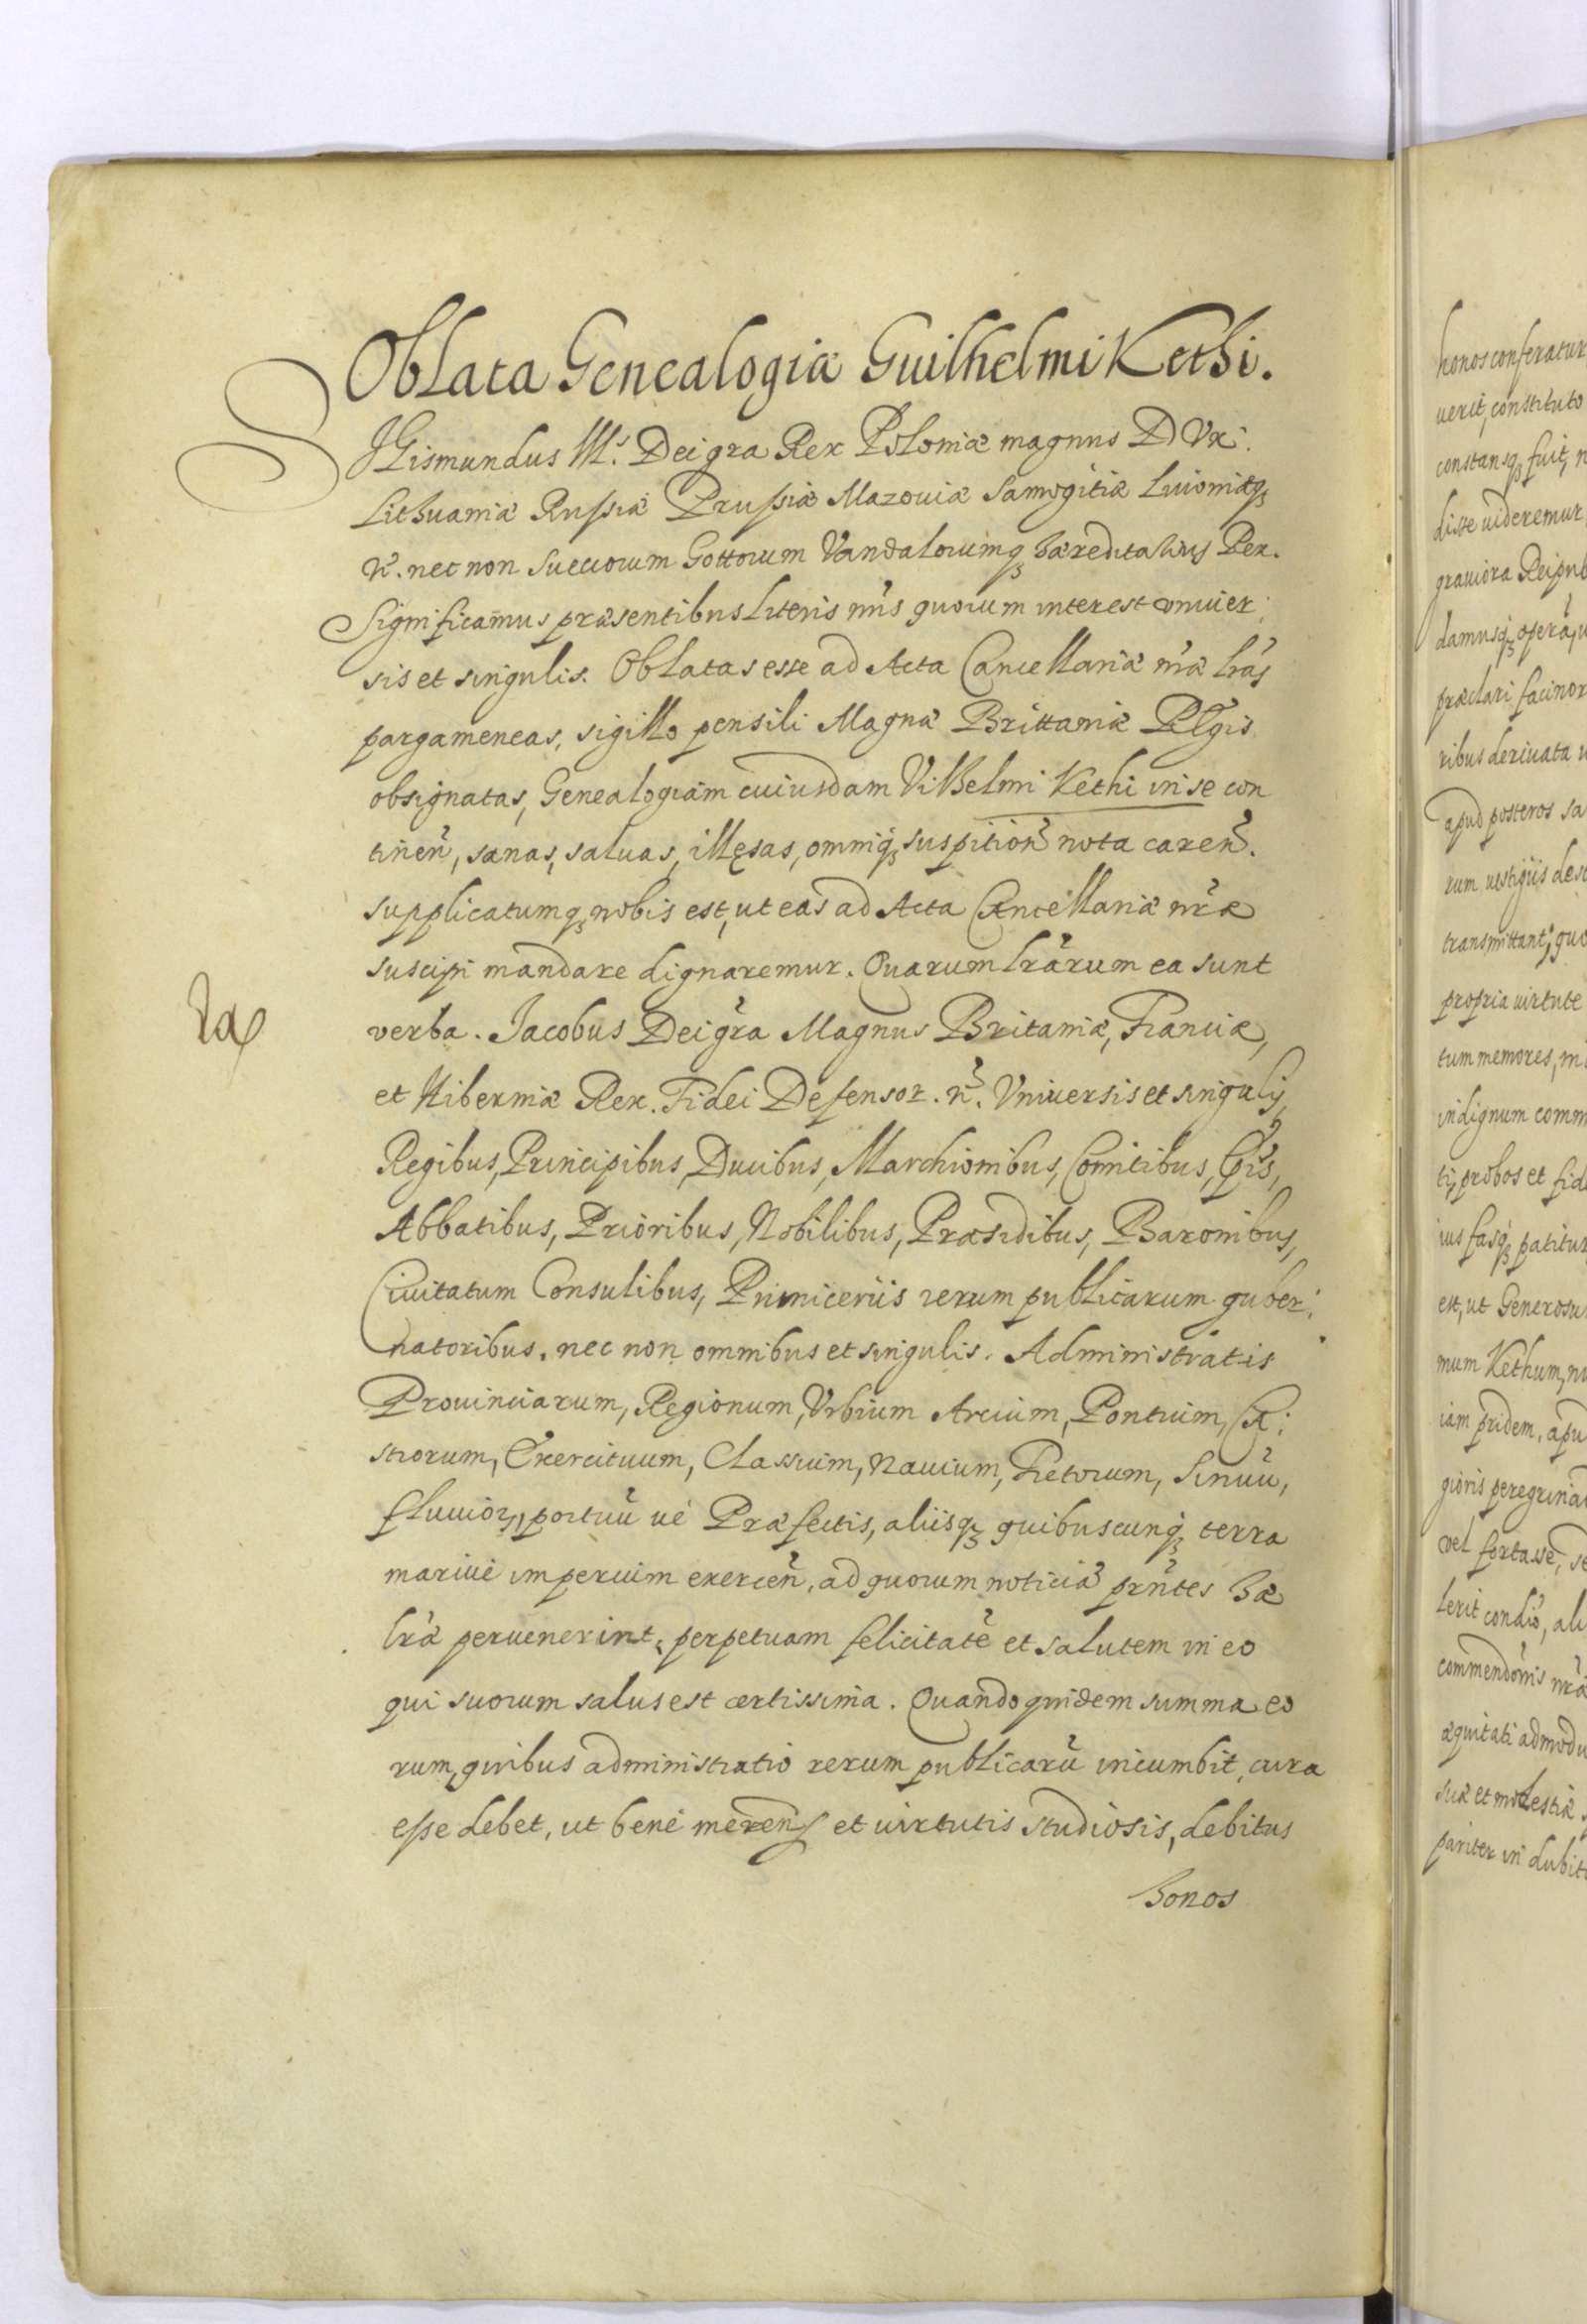 Oblata Genealogiæ Guilhelmi Kethi.
SIGismundus III.s Dei gra Rex Poloniæ magnus DVx.
Lithuaniæ Russiæ Prussiæ Mazouiæ Samogitiæ Liuoniæqꝫ
nec non Sueciorum Gottorum Vandalorumqꝫ hæreditarius Rex.
Significamus præsentibus literis nr̃is quorum interest vniuer:
sis et singulis. Oblatas esse ad Acta Cancellariæ nr̃æ lr̃as
pargameneas, sigillo pensili Magnæ Brittaniæ REgis
obsignatas, Genealogiam cuiusdam Vilhelmi Kethi in se con
tineñ, sanas, saluas, illęsas, omniqꝫ suspitioñ nota careñ.
supplicatumqꝫ nobis est, ut eas ad Acta Cancellariæ nr̃æ
suscipi mandare dignaremur. Quarum lr̃arum ea sunt
verba. Jacobus Dei gr̃a Magnus Britaniæ, Franciæ,
et Hiberniæ Rex. Fidei Defensor. Vniuersis et singulis,
Regibus, Principibus, Ducibus, Marchionibus, Comitibus, Ep̃is,
Abbatibus, Prioribus, Nobilibus, Præsidibus, Baronibus,
Ciuitatum Consulibus, Primiceriis rerum publicarum guber:
natoribus. nec non omnibus et singulis. Administratis
Prouinciarum, Regionum, Vrbium Arcium, Pontium, Ca:
strorum, Exercituum, Classium, Nauium, Fretorum, Sinuũ,
fluuioꝝ, portuũ uè Præfectis, aliisqꝫ quibuscunqꝫ terra
mariuè imperium exerceñ, ad quorum noticiã pr̃ntes hæ
lr̃æ peruenerint, perpetuam felicitatẽ et salutem in eo
qui suorum salus est certissima. Quandoquidem summa eo
rum, quibus administratio rerum publicarũ incumbit, cura
esse debet, ut benè merenꝭ et uirtutis studiosis, debitus
honos
honos conferatur
uerit, constituto
constansqꝫ fuit, n
disse uideremur
grauiora Reipub
damusqꝫ operã, u
præclari facinor
ribus deriuata u
apud posteros sa
rum uestigiis des
transmittant, quo
propria uirtute
tum memores,
indignum comm
ti, probos et fid
ius fasqꝫ patitur
est, ut Generosu
mum Kethum, nu
iam pridem, apu
gionis peregrina
vel fortasse, se
lerit condiõ, ali
commendõnis nr̃a
æquitati admodu
suæ et molestiæ
pariter in dubit